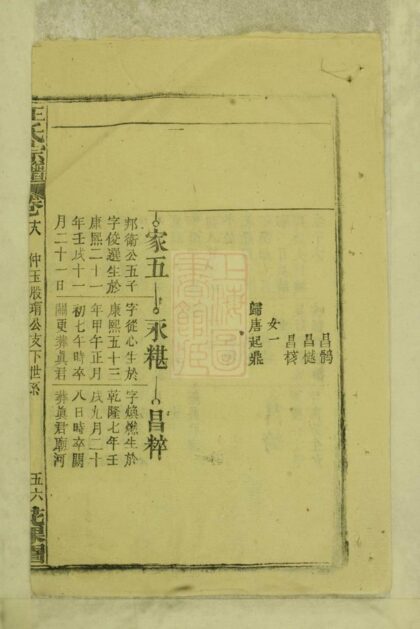 昌鶴
昌樾
昌棧
女一
歸唐起鼎
家五
邦衛公五子
字俊選生於
康熙二十一
年壬戌十一
月二十一日
永椹
字從心生於
康熙五十三
年甲午正月
初七午時卒
關更葬眞君
昌粹
字煥燃生於
乾隆七年壬
戌九月二十
八日時卒闕
葬眞君廟河
王氏宗譜
卷十八
仲玉殷瑨公支下世系
五六
上海圖書館藏